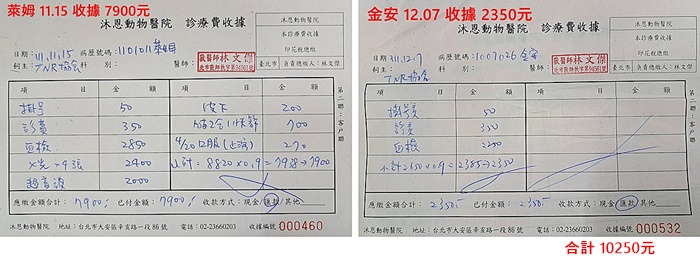 萊姆 11.15 收據 7900元
沐恩動物醫院 診療費收據
沐恩動物醫院
本診療費收據
印花稅總繳
臺北市 負責總繳人:林文傑
日期: 111.11.15 病歷號碼: 1101011 萊姆
飼主: TNR協會 科 別: 醫師: 獸醫師林文傑
項 目 金 額 項 目 金 額
掛号 50 皮下 200
診費 350 700
血檢 2850 270
X光-4張 2400 小計: 8820×0.9=7938→7900
超音波 2000
應繳金額合計: 7900 已付金額: 7900 收款方式:現金/匯款/其他
沐恩動物醫院 地址:台北市大安區辛亥路一段86號 電話:02-23660203 收據編號 000460
第二聯:客戶聯
金安 12.07 收據 2350元
沐恩動物醫院 診療費收據
沐恩動物醫院
本診療費收據
印花稅總繳
臺北市 負責總繳人:林文傑
日期: 111.12.7 病歷號碼: 1007026 金安
飼主: TNR協會 科 別: 醫師: 獸醫師林文傑
項 目 金 額 項 目 金 額
掛号 50
診費
血檢
小計 2650×0.9=2385→2350
應繳金額合計: 2350 已付金額: 2350 收款方式:現金/匯款/其他
沐恩動物醫院 地址:台北市大安區辛亥路一段86號 電話:02-23660203 收據編號 000532
第二聯:客戶聯
合計 10250元